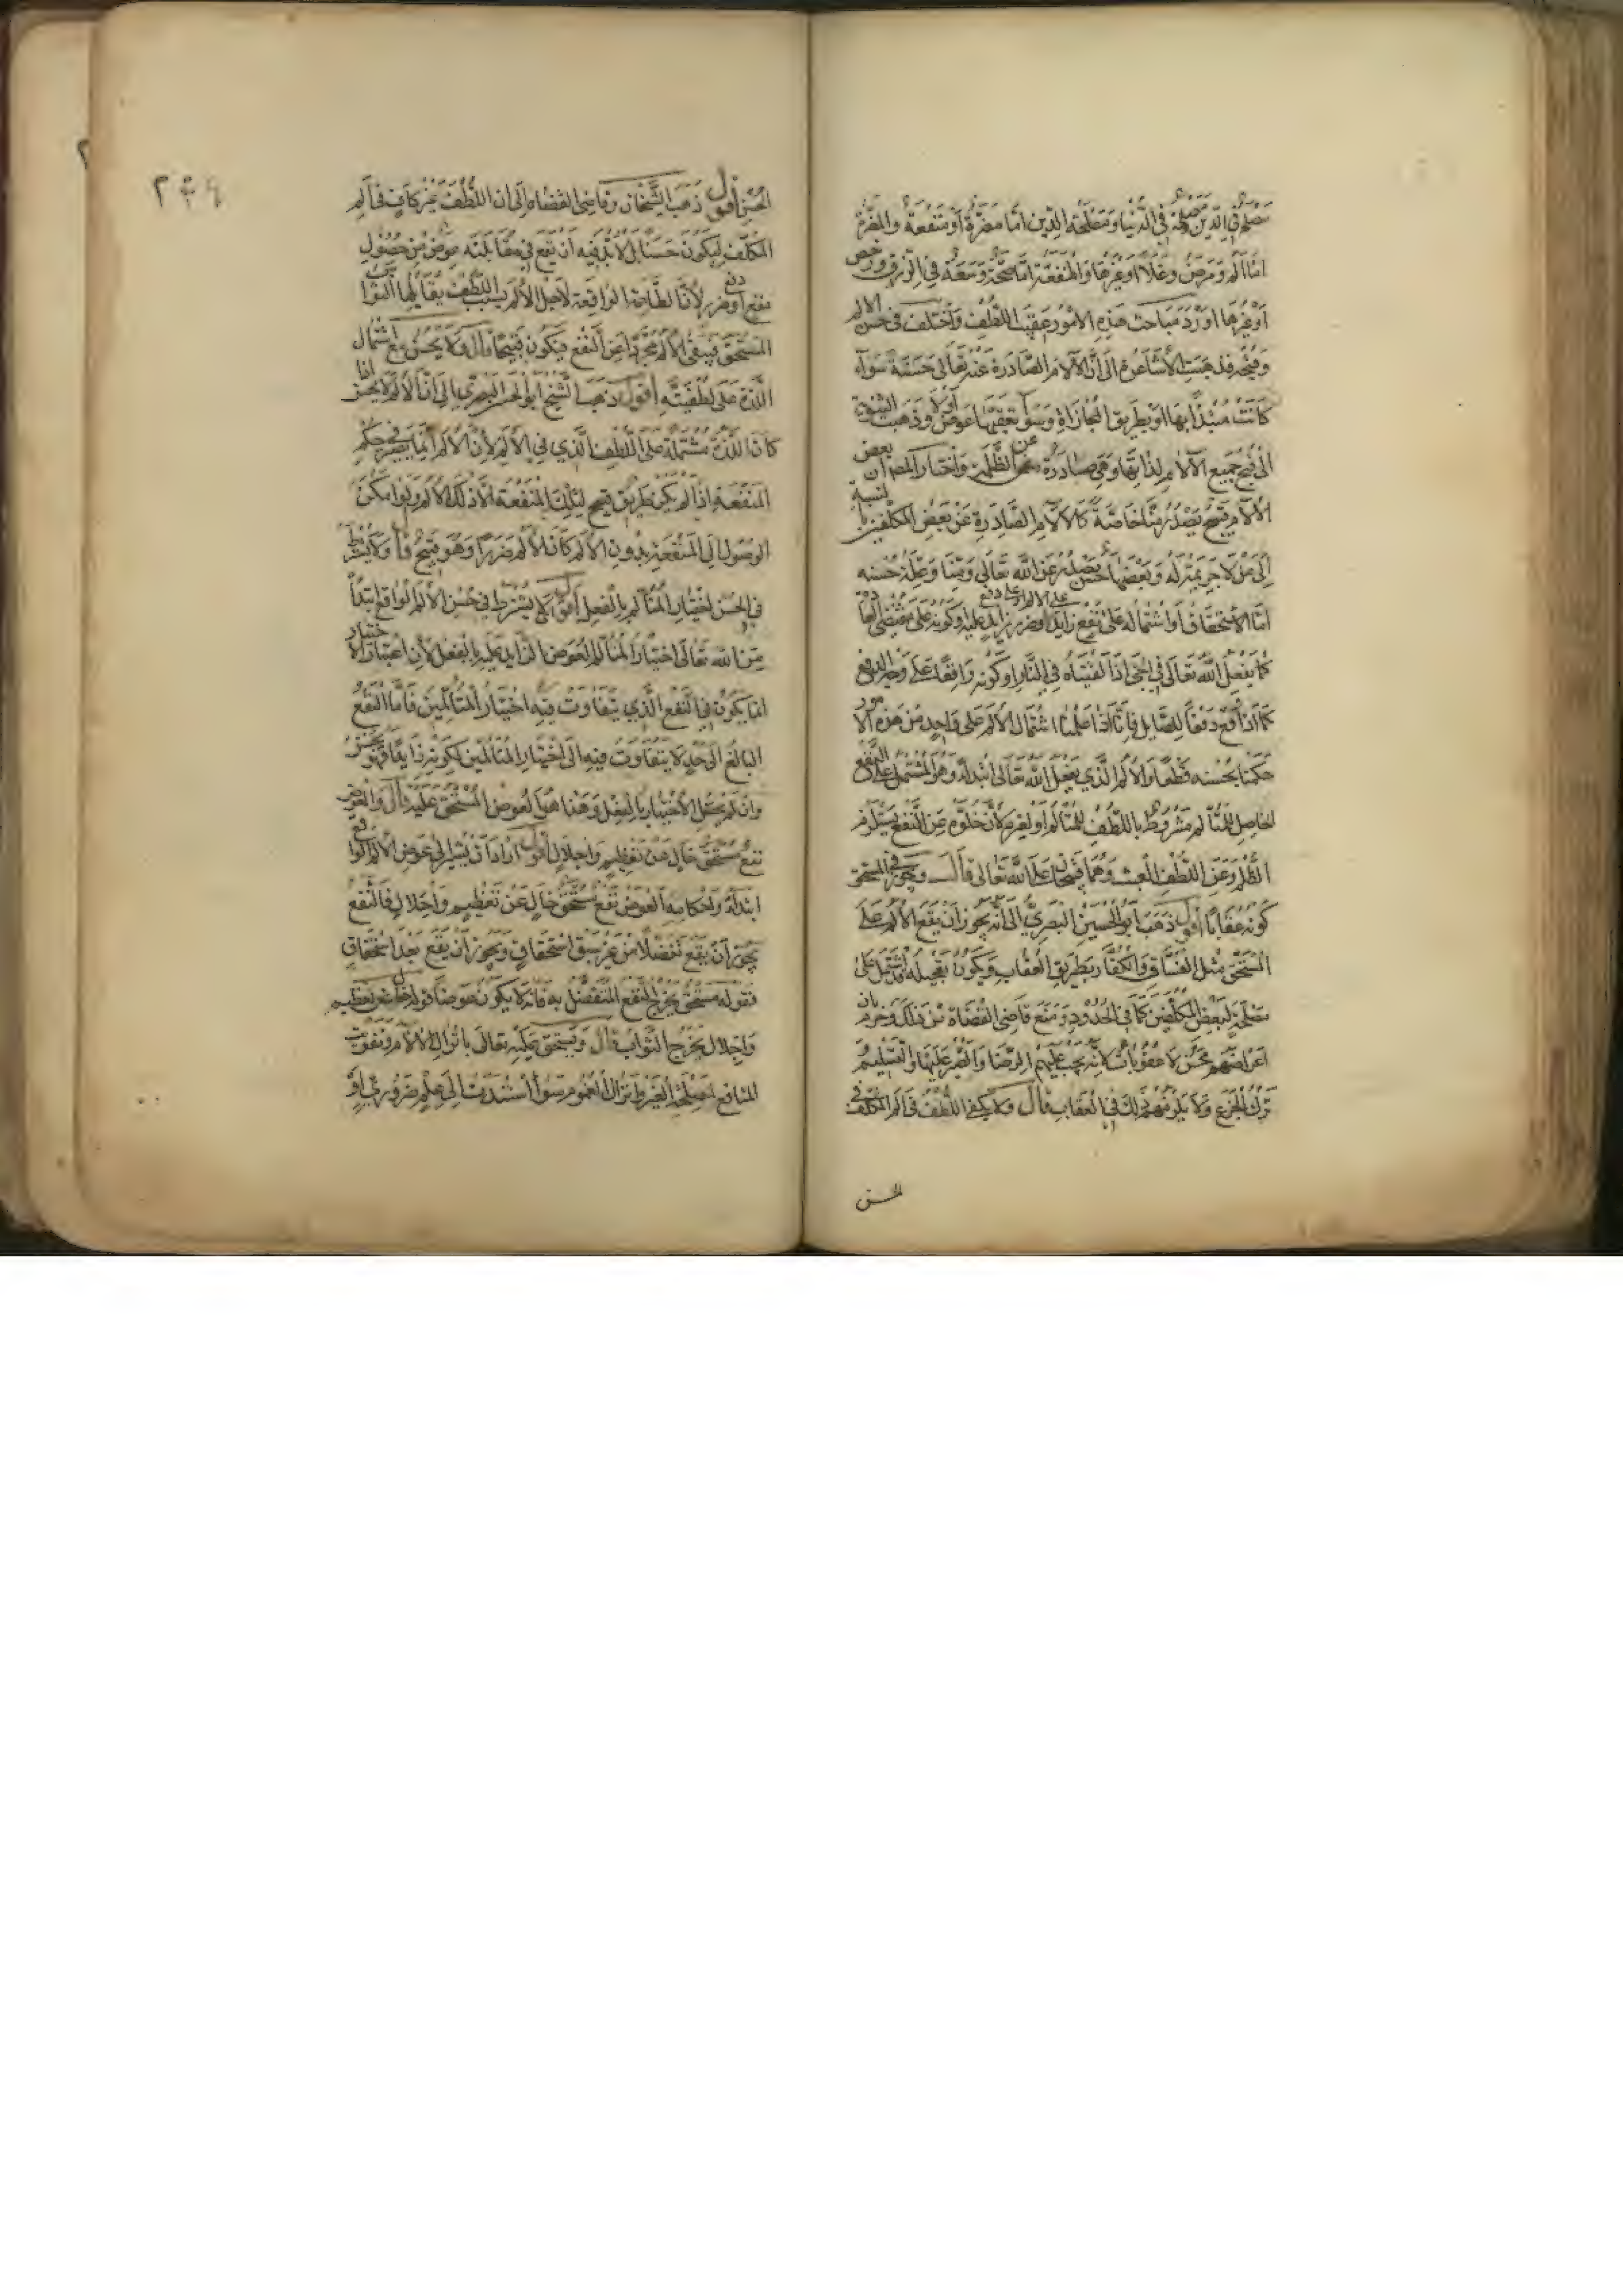 مصلحة في الدين مصلحة في الدنيا ومصلحة الدين اما مضرة أو منفعة والمضرة
اما ألم ومرض وغلاء أو غيرها والمنفعة اما صحة وسعة في الرزق ورخص
أو غيرها أورد مباحث هذه الأمور عقيب اللطف واختلف في حسن الالم
وقبحه فذهبت الأشاعرة إلى أن الآلام الصادرة عنه تعالى حسنة سواء
كانت مبتدأ بها أو بطريق المجازاة وسواء تعقبها عوض أو لا وذهبت الثنوية
الى قبح جميع الآلام لذاتها وهي صادرة عن الظلمة واختار المصنف أن بعض
الآلام قبيح يصدر منا خاصة كالآلام الصادرة عن بعض المكلفين بالنسبة
إلى من لا جريمة له وبعضها حسن يصدر عن الله تعالى ومنا وعلة حسنه
اما الاستحقاق أو اشتماله على نفع زايد على الالم أو على دفع ضرر زايد عليه أو كونه على مقتضى العادة
كما يفعل الله تعالى في الحي اذا ألقيناه في النار أو كونه واقعا على وجه الدفع
كما اذا وقع دفعا للصايل فإنا اذا علمنا اشتمال الألم على واحد من هذه الأمور
حكمنا بحسنه قطعا والألم الذي يفعل الله تعالى ابتداء وهو المشتمل على النفع
الحاصل للمتألم مشروط باللطف للمتألم أو لغيره لأن خلوه عن النفع يستلزم
الظلم وعن اللطف العبث وهما قبيحان على الله تعالى قال ويجوز في المستحق
كونه عقابا أقول ذهب أبو الحسين البصري إلى أنه يجوز أن يقع الألم على
المستحق مثل الفساق والكفار بطريق العقاب ويكون تعجيله قد اشتمل على
مصلحة لبعض المكلفين كما في الحدود ومنع قاضي القضاة من ذلك وجزم بان
أمراضهم محن لا عقوبات لأنه يجب عليهم الرضا والصبر عليها والتسليم و
ترك الجزع ولا يلزمهم ذلك في العقاب قال ولا يكفي اللطف في ألم المكلف في
الحسن
٢٤٩
الحسن أقول ذهب الشيخان وقاضي القضاة إلى أن اللطف غير كاف في ألم
المكلف ليكون حسنا بل لا بد فيه أن يقع في مقابلته عوض من حصول
نفع أو دفع ضرر لأن الطاعة الواقعة لاجل الألم بسبب اللطف يقابلها الثواب
المستحق فيبقى الألم مجردا عن النفع فيكون قبيحا قال ولا يحسن مع اشتمال
اللذة على لطفيته أقول ذهب الشيخ أبو الحسين البصري إلى أن الألم لا يحسن اذا
كان اللذة مشتملة على اللطف الذي في الألم لأن الألم انما يصير في حكم
المنفعة إذا لم يكن طريق قبيح لتلك المنفعة الا ذلك الألم ولو امكن
الوصول إلى المنفعة بدون الألم كان الألم ضررا وهو قبيح قال ولا يشترط
في الحسن اختيار المتألم بالفعل أقول لا يشترط في حسن الألم الواقع ابتداء
من الله تعالى اختيار المتألم العوض الزايد عليه بالفعل لأن اعتبار الاختيار
انما يكون في النفع الذي يتفاوت فيه اختيار المتألمين فأما النفع
البالغ الى حد لا يتفاوت فيه الى اختيار المتألمين لكونه زايدا فهو يحسن
وان لم يحصل الاختيار بالفعل وهذا هو العوض المستحق عليه قال والعوض
نفع مستحق خال من تعظيم واجلال أقول أراد أن يشير إلى عوض الألم الواقع
ابتداء وأحكامه العوض نفع مستحق خال عن تعظيم واجلال فالنفع
يجوز أن يقع تفضلا من غير سبق استحقاق ويجوز أن يقع بعد استحقاق
فقوله مستحق يخرج النفع المتفضل به فانه لا يكون عوضا وقوله خال عن تعظيم
واجلال يخرج الثواب قال ويستحق عليه تعالى بانزال الآلام وتفويت
المنافع لمصلحة الغير وانزال الغموم سواء استندت إلى علم ضروري أو